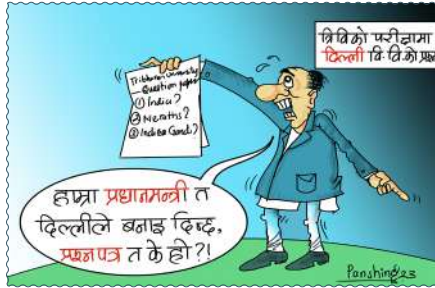 त्रिविको परीक्षामा
दिल्ली वि.वि.को प्रश्न
Tribhuvan University
Question paper
① India?
② Neraths?
③ Indira Gandi?
हाम्रा प्रधानमन्त्री त
दिल्लीले बनाइ दिन्छ,
प्रश्नपत्र त के हो?!
Panshing 23